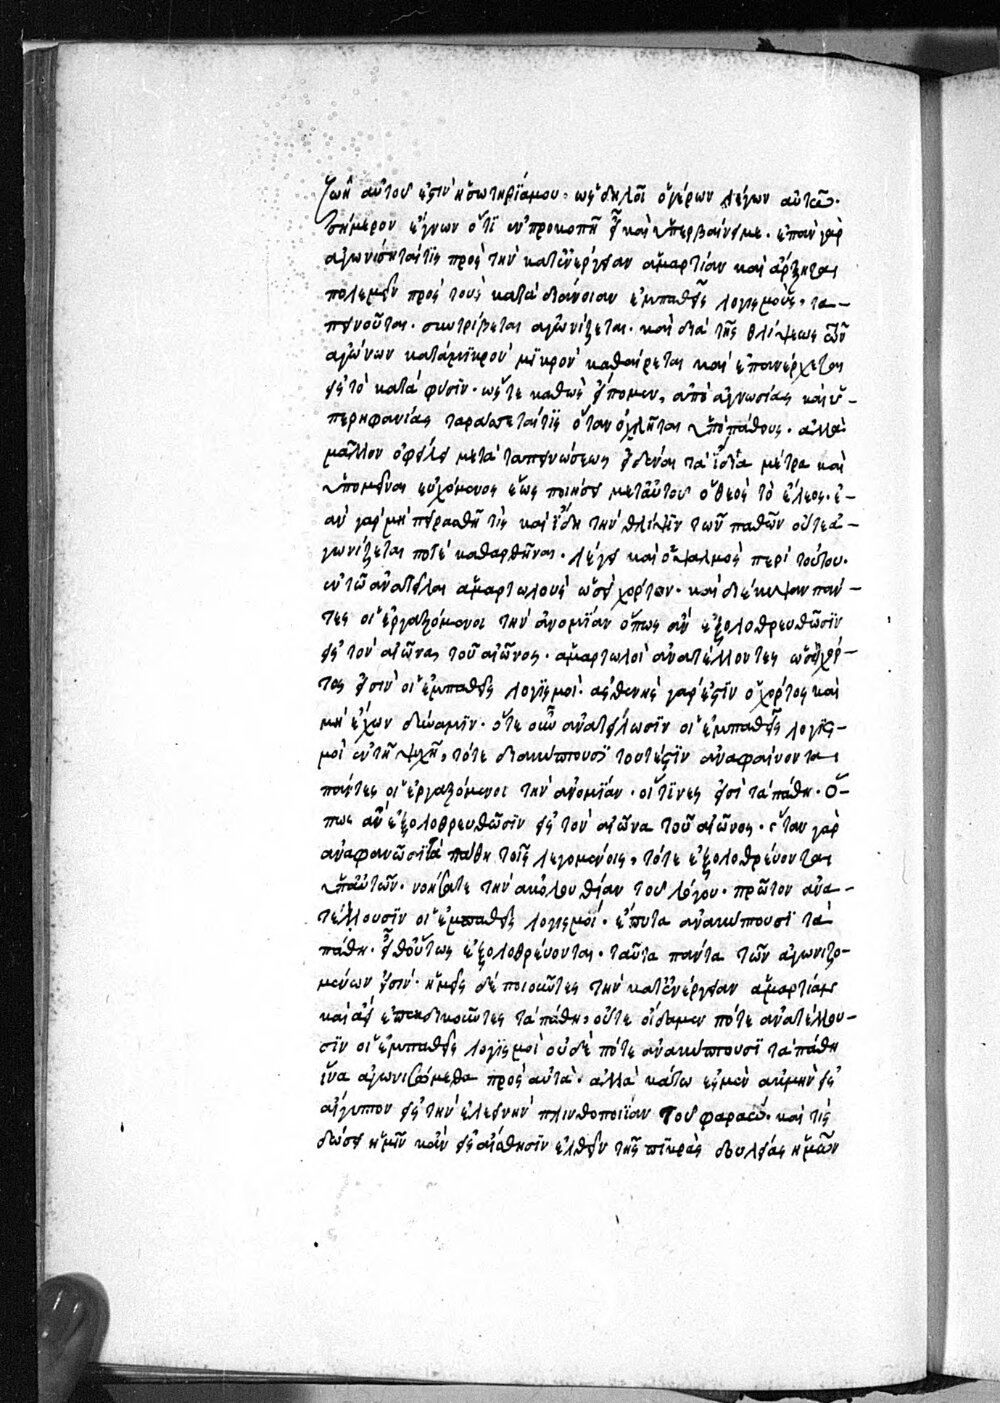 ζωὴ αὐτοῦ ἐστιν ἡ σωτηρία μου· ὡς δηλοῖ ὁ γέρων λέγων αὐτῶ·
σήμερον ἔγνων ὅτι ἐν προκοπῆ εἶ καὶ ὑπερβαίνεις με. ἐπὰν γὰρ
ἀγωνίσηταί τις πρὸς τὴν κατ' ἐνέργειαν ἁμαρτίαν καὶ ἄρξηται
πολεμεῖν πρὸς τοὺς κατὰ διάνοιαν ἐμπαθεῖς λογισμούς, τα–
πεινοῦται· συντρίβεται ἀγωνίζεται· καὶ διὰ τῆς θλίψεως τῶν
ἀγώνων κατὰ μικρὸν μικρὸν καθαίρεται καὶ ἐπανέρχεται
εἰς τὸ κατὰ φύσιν· ὥστε καθὼς εἴπομεν, ἀπὸ ἀγνωσίας καὶ ὑ–
περηφανίας ταράσσεταί τις ὅταν ὀχλῆται ὑπὸ πάθους· ἀλλὰ
μᾶλλον ὀφείλει μετὰ ταπεινώσεως εἰδέναι τὰ ἴδια μέτρα καὶ
ὑπομεῖναι εὐχόμενος ἕως ποιήσει μετ' αὐτοῦ ὁ θεὸς τὸ ἔλεος· ἐ–
ὰν γὰρ μὴ πειρασθῆ τις καὶ ἴδη τὴν θλίψιν τῶν παθῶν οὔτε ἀ–
γωνίζεται ποτὲ καθαρθῆναι. λέγει καὶ ὁ ψαλμὸς περὶ τούτου·
ἐν τῶ ἀνατεῖλαι ἁμαρτωλοὺς ὡσεὶ χόρτον· καὶ διέκυψαν πάν–
τες οἱ ἐργαζόμενοι τὴν ἀνομίαν ὅπως ἂν ἐξολοθρευθῶσιν
εἰς τὸν αἰῶνα τοῦ αἰῶνος. ἁμαρτωλοὶ ἀνατέλλοντες ὡσεὶ χόρ–
τος εἰσὶν οἱ ἐμπαθεῖς λογισμοί· ἀσθενὴς γάρ ἐστιν ὁ χόρτος καὶ
μὴ ἔχων δύναμιν· ὅτε οὖν ἀνατείλωσιν οἱ ἐμπαθεῖς λογισ–
μοὶ ἐν τῆ ψυχῆ, τότε διακύπτουσι τουτέστιν ἀναφαίνονται
πάντες οἱ ἐργαζόμενοι τὴν ἀνομίαν· οἵτινές εἰσι τὰ πάθη. ὅ–
πως ἂν ἐξολοθρευθῶσιν εἰς τὸν αἰῶνα τοῦ αἰῶνος. ὅταν γὰρ
ἀναφανῶσι τὰ πάθη τοῖς λεγομένοις, τότε ἐξολοθρεύονται
ὑπ' αὐτῶν. νοήσατε τὴν ἀκολουθίαν τοῦ λόγου. πρῶτον ἀνα–
τέλλουσιν οἱ ἐμπαθεῖς λογισμοί· ἔπειτα ἀνακύπτουσι τὰ
πάθη. εἶθ' οὕτως ἐξολοθρεύονται. ταῦτα πάντα τῶν ἀγωνιζο–
μένων εἰσίν· ἡμεῖς δὲ ποιοῦντες τὴν κατ' ἐνέργειαν ἁμαρτίαν
καὶ ἀεὶ ἐπεκδικοῦντες τὰ πάθη, οὔτε οἴδαμεν πότε ἀνατέλλου–
σιν οἱ ἐμπαθεῖς λογισμοὶ οὐδὲ πότε ἀνακύπτουσι τὰ πάθη
ἵνα ἀγωνιζώμεθα πρὸς αὐτά· ἀλλὰ κάτω ἐσμὲν ἀκμὴν εἰς
αἴγυπτον εἰς τὴν ἐλεεινὴν πλινθοποιίαν τοῦ φαραώ. καὶ τίς
δώσει ἡμῖν κἂν εἰς αἴσθησιν ἐλθεῖν τῆς πικρᾶς δουλείας ἡμῶν